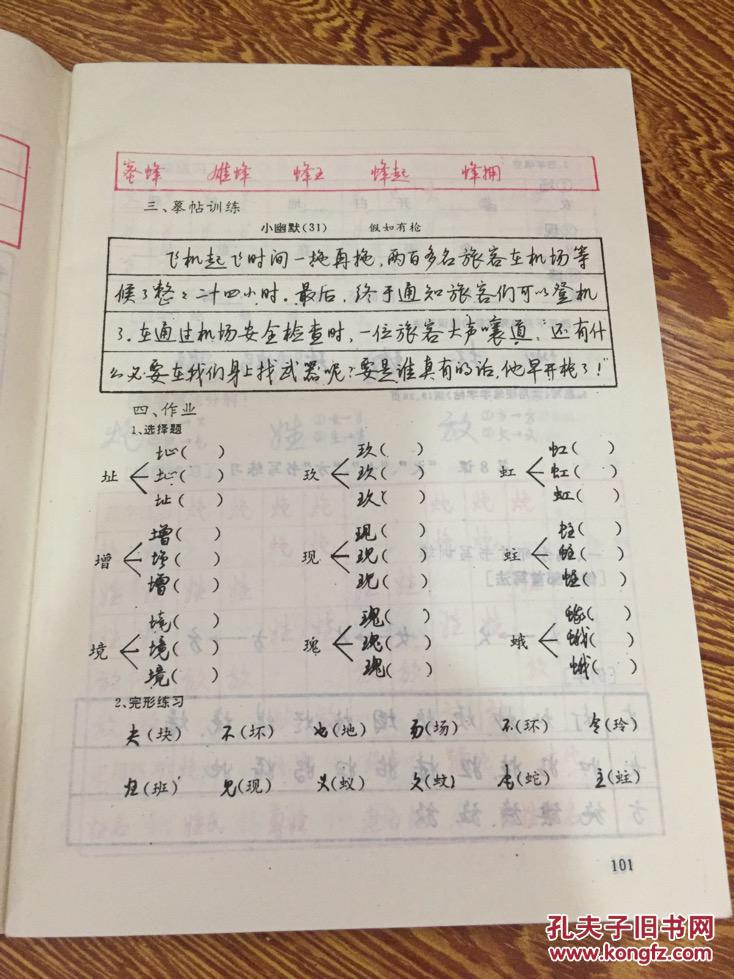 蜜蜂 雄蜂 蜂王 蜂起 蜂拥
三、摹帖训练
小幽默(31) 假如有枪
飞机起飞时间一拖再拖,两百多名旅客在机场等
候了整整二十四小时。最后,终于通知旅客们可以登机
了。在通过机场安全检查时,一位旅客大声嚷道:“还有什
么必要在我们身上找武器呢?要是谁真有的话,他早开枪了!”
四、作业
1、选择题
址 址( ) 址( ) 址( ) 玖 玖( ) 玖( ) 玖( ) 虹 虹( ) 虹( ) 虹( )
增 增( ) 增( ) 增( ) 现 现( ) 现( ) 现( ) 蛀 蛀( ) 蛀( ) 蛀( )
境 境( ) 境( ) 境( ) 瑰 瑰( ) 瑰( ) 瑰( ) 蛾 蛾( ) 蛾( ) 蛾( )
2、完形练习
夬(块) 不(坏) 也(地) 㐄(场) 不(环) 令(玲)
(班) 见(现) 义(蚁) 文(蚊) 它(蛇) 主(蛀)
101
孔夫子旧书网
www.kongfz.com